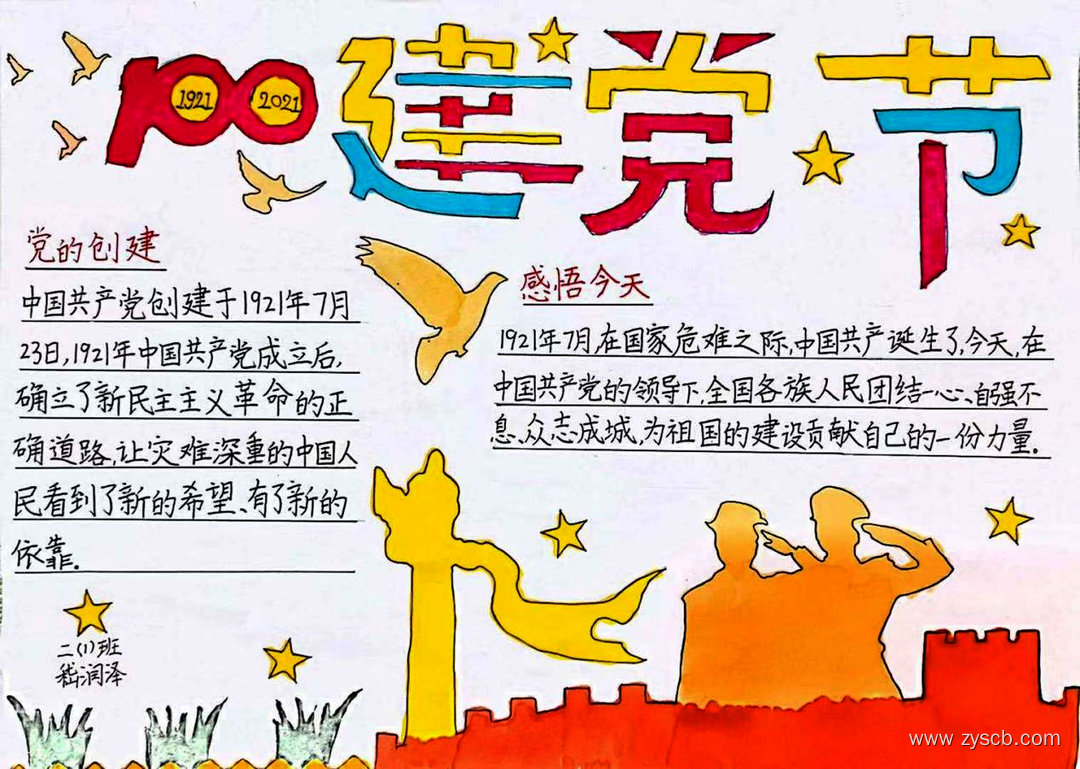 100 建党节
1921 2021
党的创建
中国共产党创建于1921年7月
23日,1921年中国共产党成立后,
确立了新民主主义革命的正
确道路,让灾难深重的中国人
民看到了新的希望、有了新的
依靠.
感悟今天
1921年7月,在国家危难之际,中国共产诞生了,今天,在
中国共产党的领导下,全国各族人民团结一心、自强不
息、众志成城,为祖国的建设贡献自己的一份力量.
二(1)班
嵇润泽
www zyscb.com